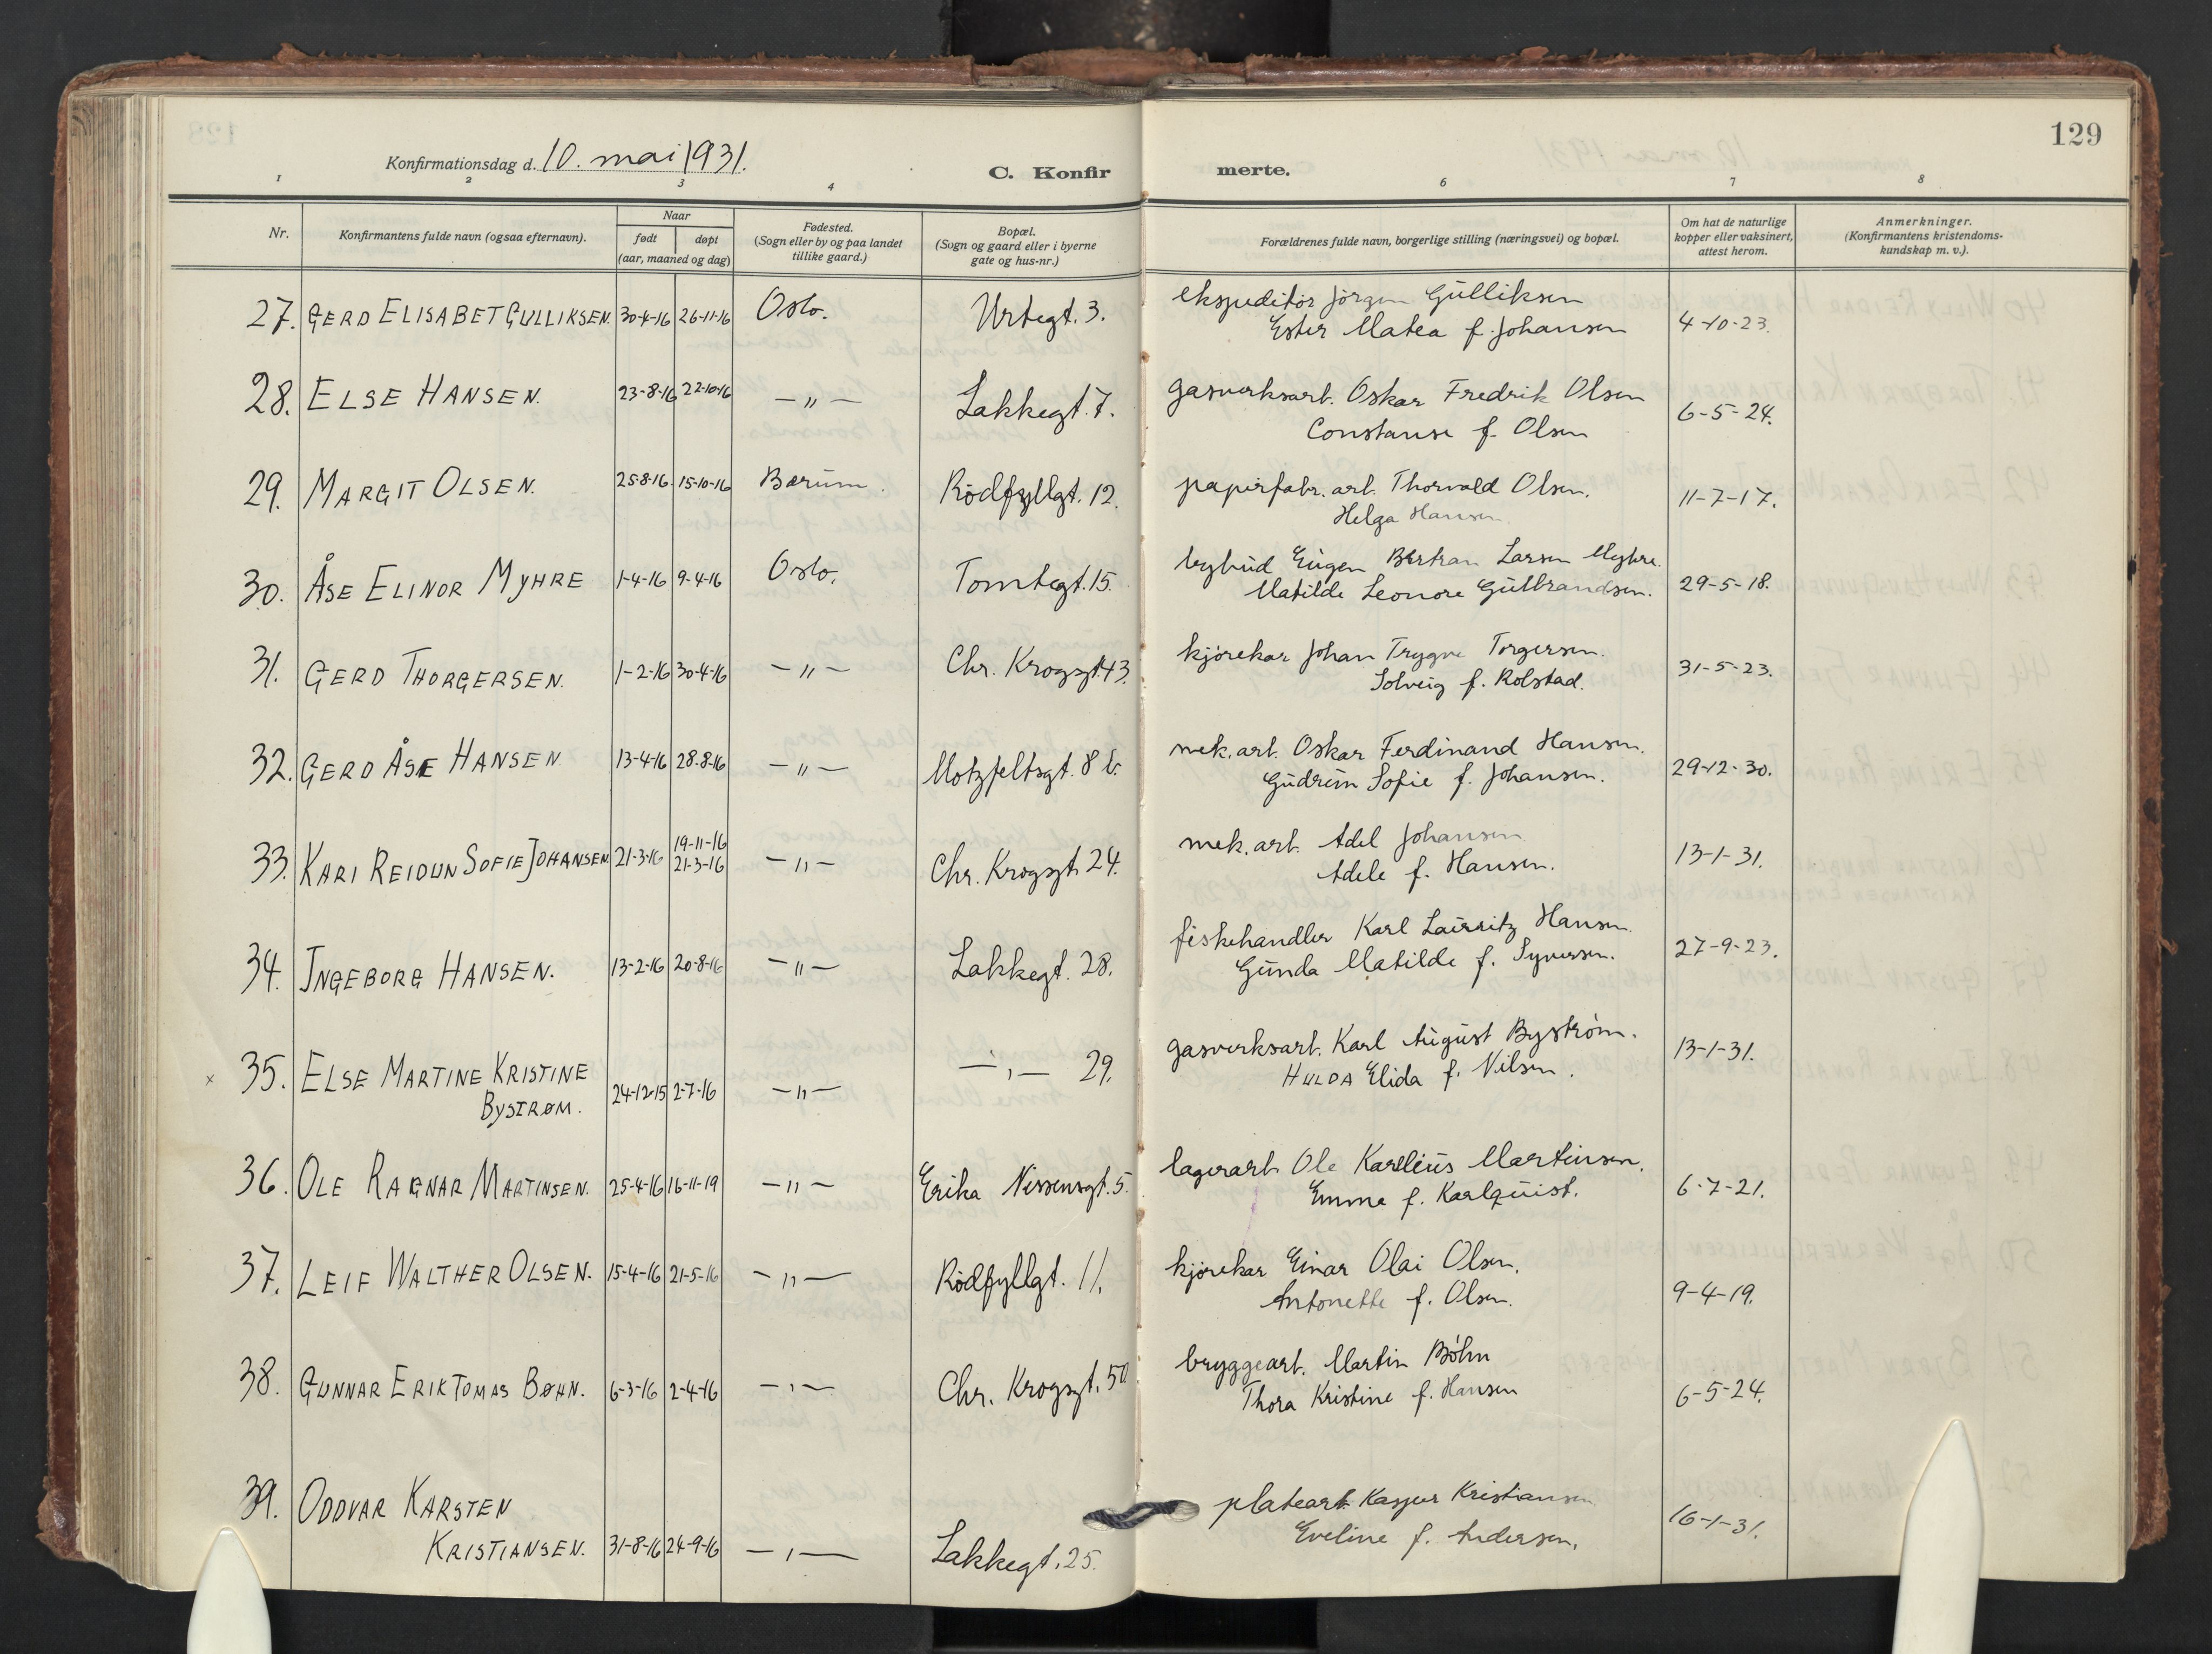 129
Konfirmationsdag d. 10. mai 1931.
C. Konfirmerte.
1 2 3 4 6 7 8
Nr.
Konfirmantens fulde navn (ogsaa efternavn).
Naar
født døpt
(aar, maaned og dag)
Fødested.
(Sogn eller by og paa landet
tillike gaard.)
Bopæl.
(Sogn og gaard eller i byerne
gate og hus-nr.)
Forældrenes fulde navn, borgerlige stilling (næringsvei) og bopæl.
Om hat de naturlige
kopper eller vaksinert,
attest herom.
Anmerkninger.
(Konfirmantens kristendoms-
kundskap m. v.).
27. GERD ELISABET GULLIKSEN. 30-4-16 26-11-16 Oslo. Urtegt. 3. ekspeditør Jørgen Gulliksen
Ester Matea f. Johansen 4-10-23.
28. ELSE HANSEN. 23-8-16 22-10-16 —"— Lakkegt. 7. gasverksarb. Oskar Fredrik Olsen
Constanse f. Olsen 6-5-24.
29. MARGIT OLSEN. 25-8-16 15-10-16 Bærum. Rødfyllgt. 12. papirfabr. arb. Thorvald Olsen.
Helga Hansen 11-7-17.
30. ÅSE ELINOR MYHRE 1-4-16 9-4-16 Oslo. Tomtegt. 15. bybud Eugen Bertran Larsen Myhre.
Matilde Leonore Gulbrandsen. 29-5-18.
31. GERD THORGERSEN. 1-2-16 30-4-16 —"— Chr. Krogsgt. 43. kjørekar Johan Trygve Torgersen.
Solveig f. Rolstad. 31-5-23.
32. GERD ÅSE HANSEN 13-4-16 28-8-16 —"— Motzfeltsgt. 8 b. mek. arb. Oskar Ferdinand Hansen.
Gudrun Sofie f. Johansen. 29-12-30.
33. KARI REIDUN SOFIE JOHANSEN. 21-3-16 19-11-16
21-3-16 —"— Chr. Krogsgt. 24. mek. arb. Adel Johansen
Adele f. Hansen. 13-1-31.
34. INGEBORG HANSEN. 13-2-16 20-8-16 —"— Lakkegt. 28. fiskehandler Karl Lauritz Hansen.
Gunda Matilde f. Syversen. 27-9-23.
x 35. ELSE MARTINE KRISTINE
BYSTRØM. 24-12-15 2-7-16 —"— —,— 29. gasverksarb. Karl August Byström.
HULDA Elida f. Nilsen. 13-1-31.
36. OLE RAGNAR MARTINSEN. 25-4-16 16-11-19 —"— Erika Nissensgt. 5. lagerarb. Ole Karelius Martinsen.
Emma f. Karlquist. 6-7-21.
37. LEIF WALTHER OLSEN. 15-4-16 21-5-16 —"— Rødfyllgt. 11. kjørekar Einar Olai Olsen.
Antonette f. Olsen. 9-4-19.
38. GUNNAR ERIK TOMAS BØHN. 6-3-16 2-4-16 —,— Chr. Krogsgt. 50 bryggearb. Martin Bøhn
Thora Kristine f. Hansen 6-5-24.
39. ODDVAR KARSTEN
KRISTIANSEN. 31-8-16 24-9-16 —,— Lakkegt. 25. platearb. Kasper Kristiansen
Eveline f. Andersen. 16-1-31.